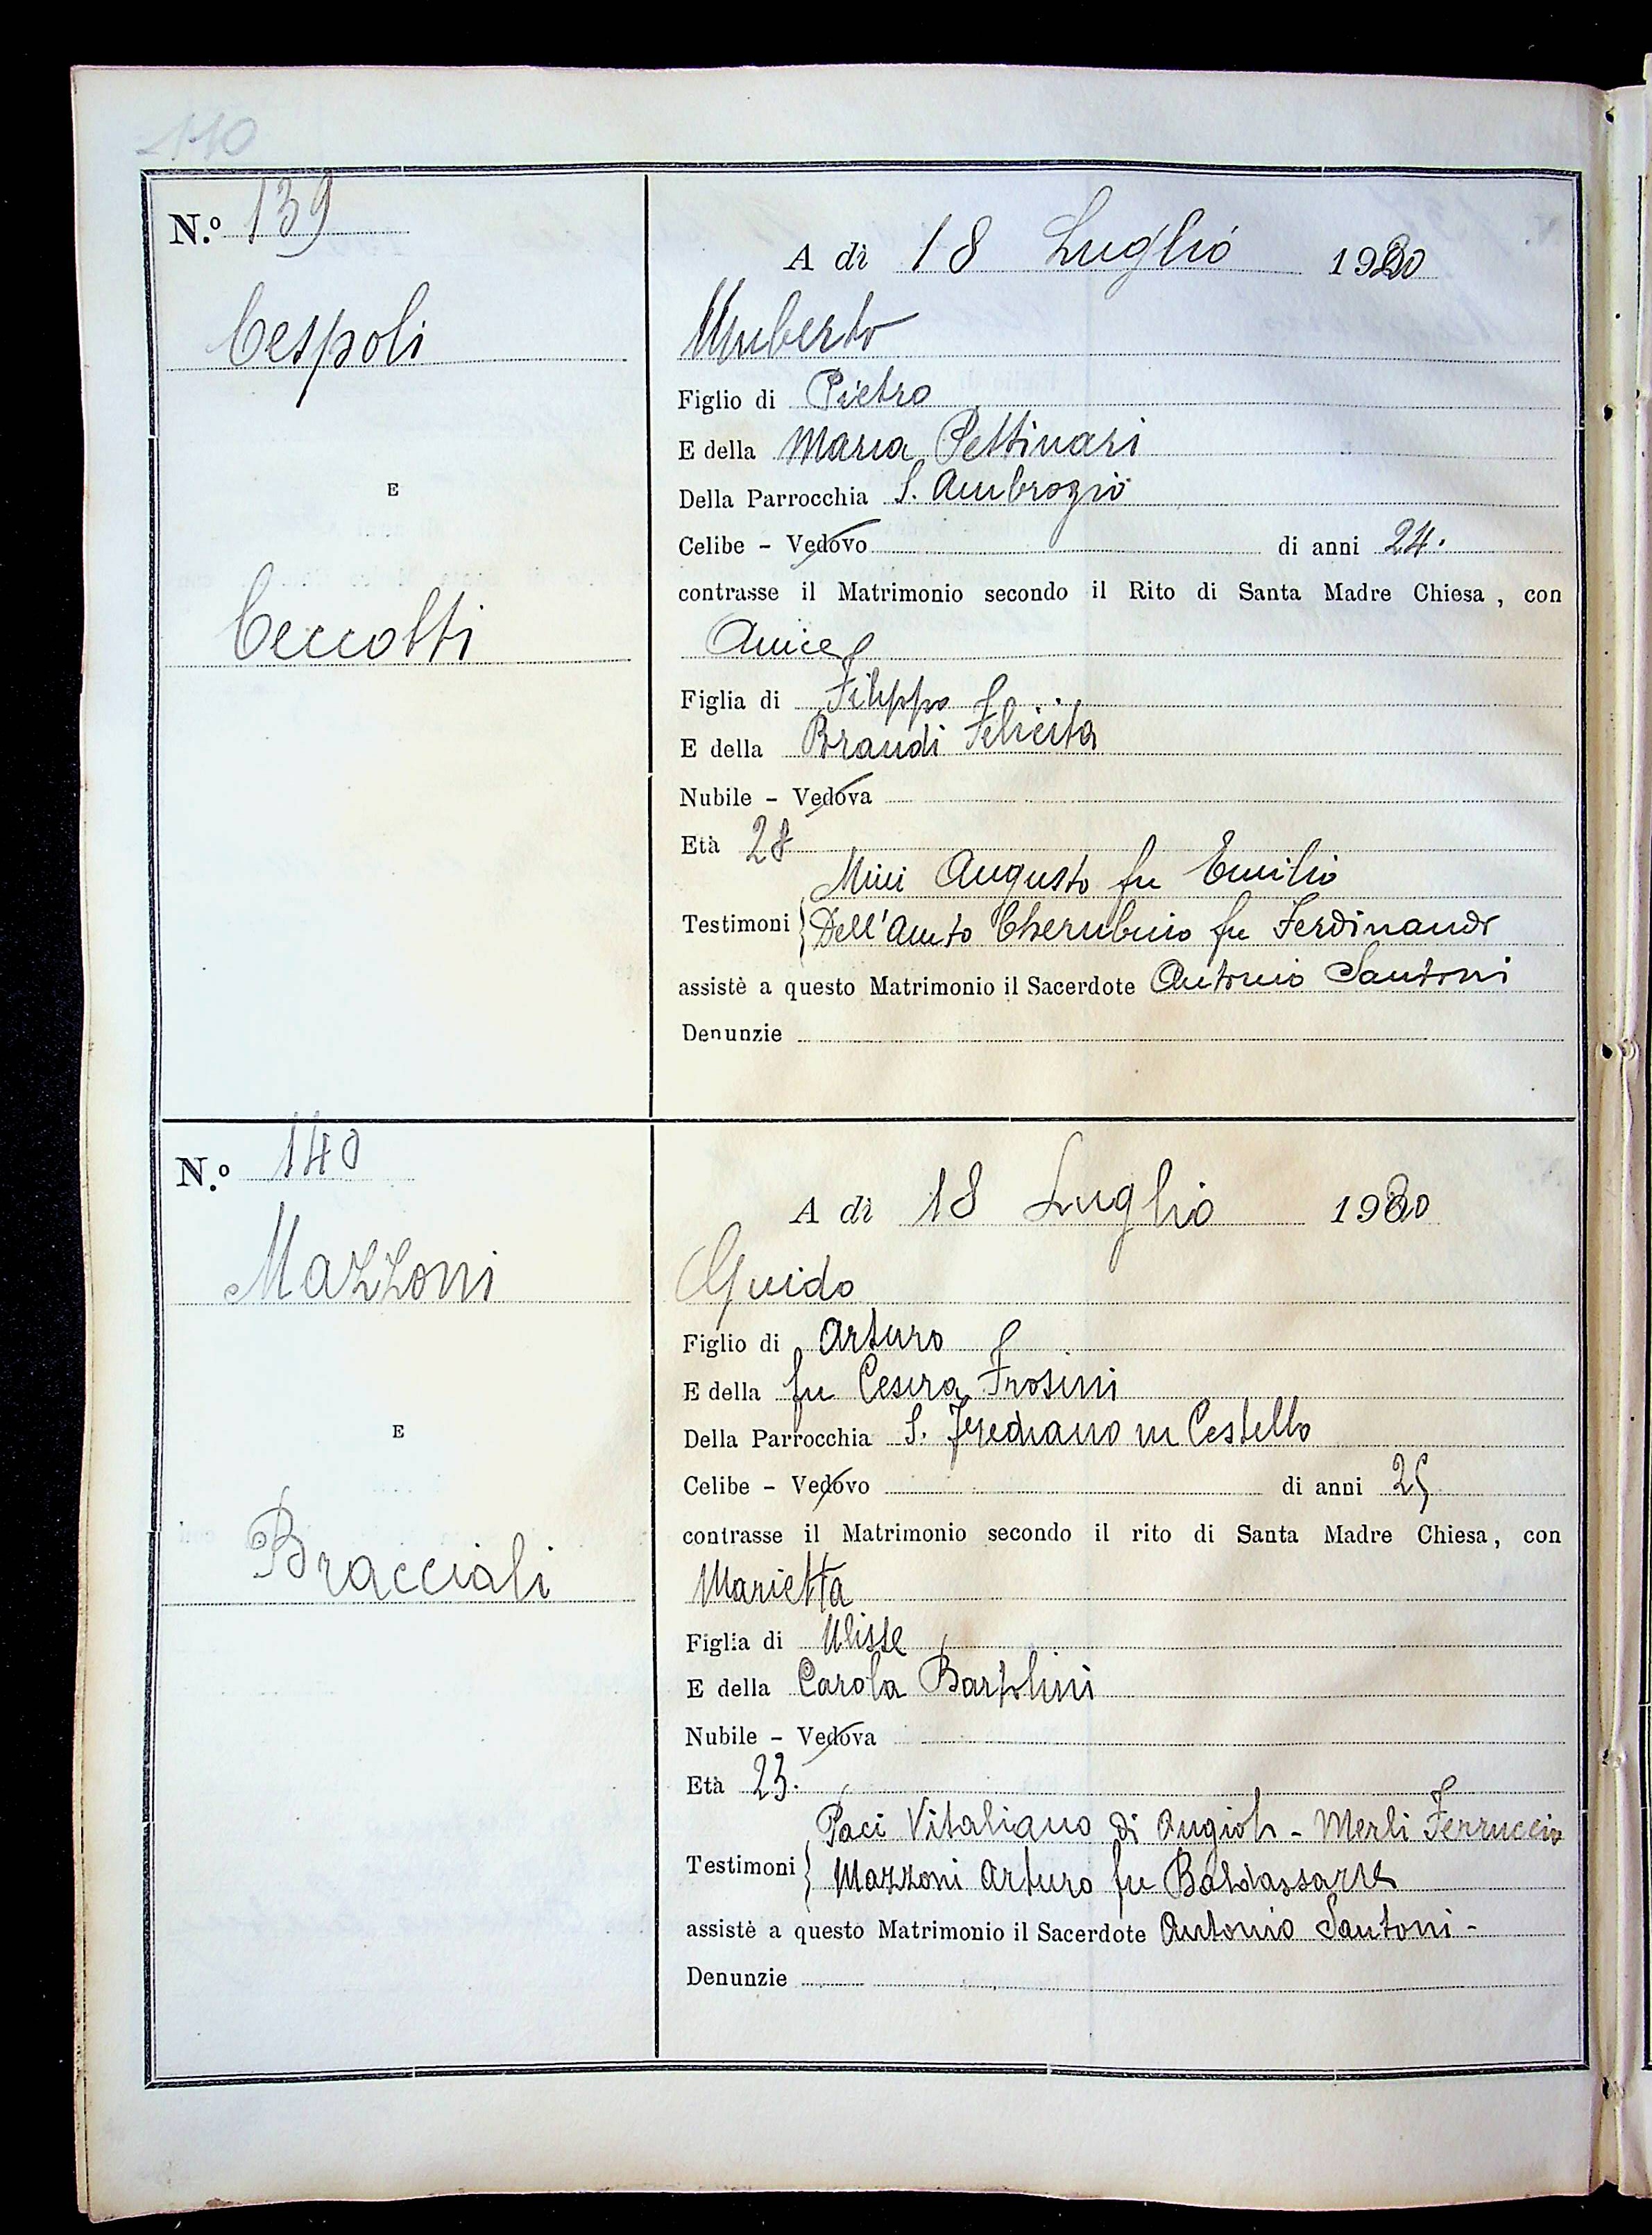 110
N.º 139
Cespoli
E
Ceccotti
A dì 18 Luglio 1920
Umberto
Figlio di Pietro
E della Maria Pettinari
Della Parrocchia S. Ambrogio
Celibe - Vedovo di anni 24.
contrasse il Matrimonio secondo il Rito di Santa Madre Chiesa, con
Figlia di Filippo
E della Brandi Felicita
Nubile - Vedova
Età 28
Mini Augusto fu Emilio
Testimoni Dell'Amto Cherubino fu Ferdinando
assistè a questo Matrimonio il Sacerdote Antonio Santoni
Denunzie
N.º 140
Mazzoni
E
Bracciali
A dì 18 Luglio 1920
Guido
Figlio di Arturo
E della fu Cesira Frosini
Della Parrocchia S. Frediano in Cestello
Celibe - Vedovo di anni 25
contrasse il Matrimonio secondo il rito di Santa Madre Chiesa, con
Marietta
Figlia di Ulisse
E della Carola Bartolini
Nubile - Vedova
Età 23.
Paci Vitaliano di Angiolo - Merli Ferruccio
Testimoni Mazzoni Arturo fu Baldassarre
assistè a questo Matrimonio il Sacerdote Antonio Santoni -
Denunzie